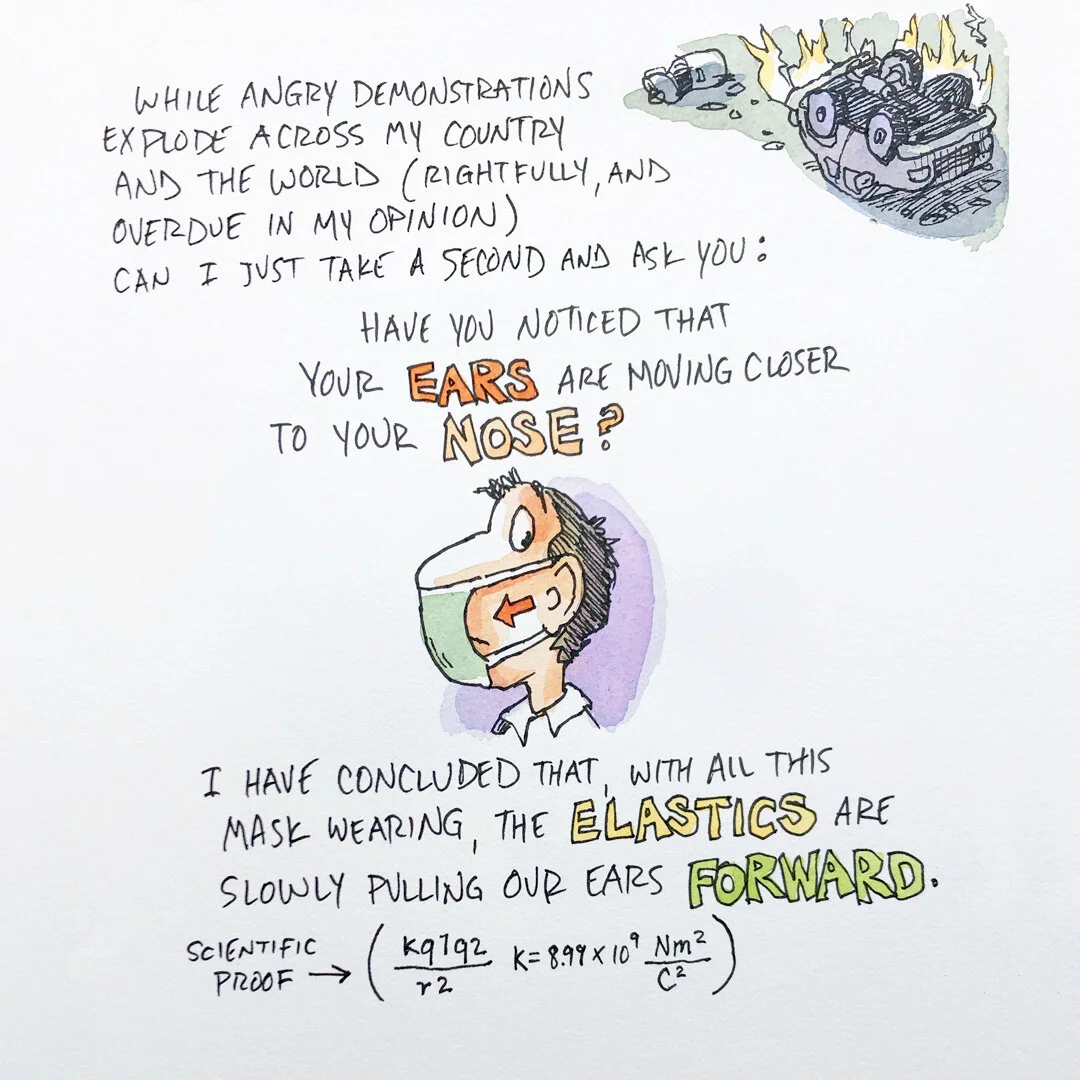 WHILE ANGRY DEMONSTRATIONS
EXPLODE ACROSS MY COUNTRY
AND THE WORLD (RIGHTFULLY, AND
OVERDUE IN MY OPINION)
CAN I JUST TAKE A SECOND AND ASK YOU:
HAVE YOU NOTICED THAT
YOUR EARS ARE MOVING CLOSER
TO YOUR NOSE?
I HAVE CONCLUDED THAT, WITH ALL THIS
MASK WEARING, THE ELASTICS ARE
SLOWLY PULLING OUR EARS FORWARD.
SCIENTIFIC
PROOF → (kq1q2/r2 K=8.99×10⁹ Nm²/C²)